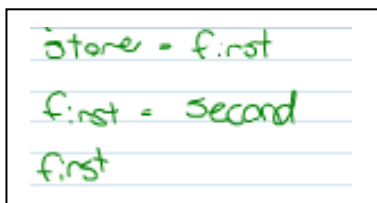 store = first
first = second
first